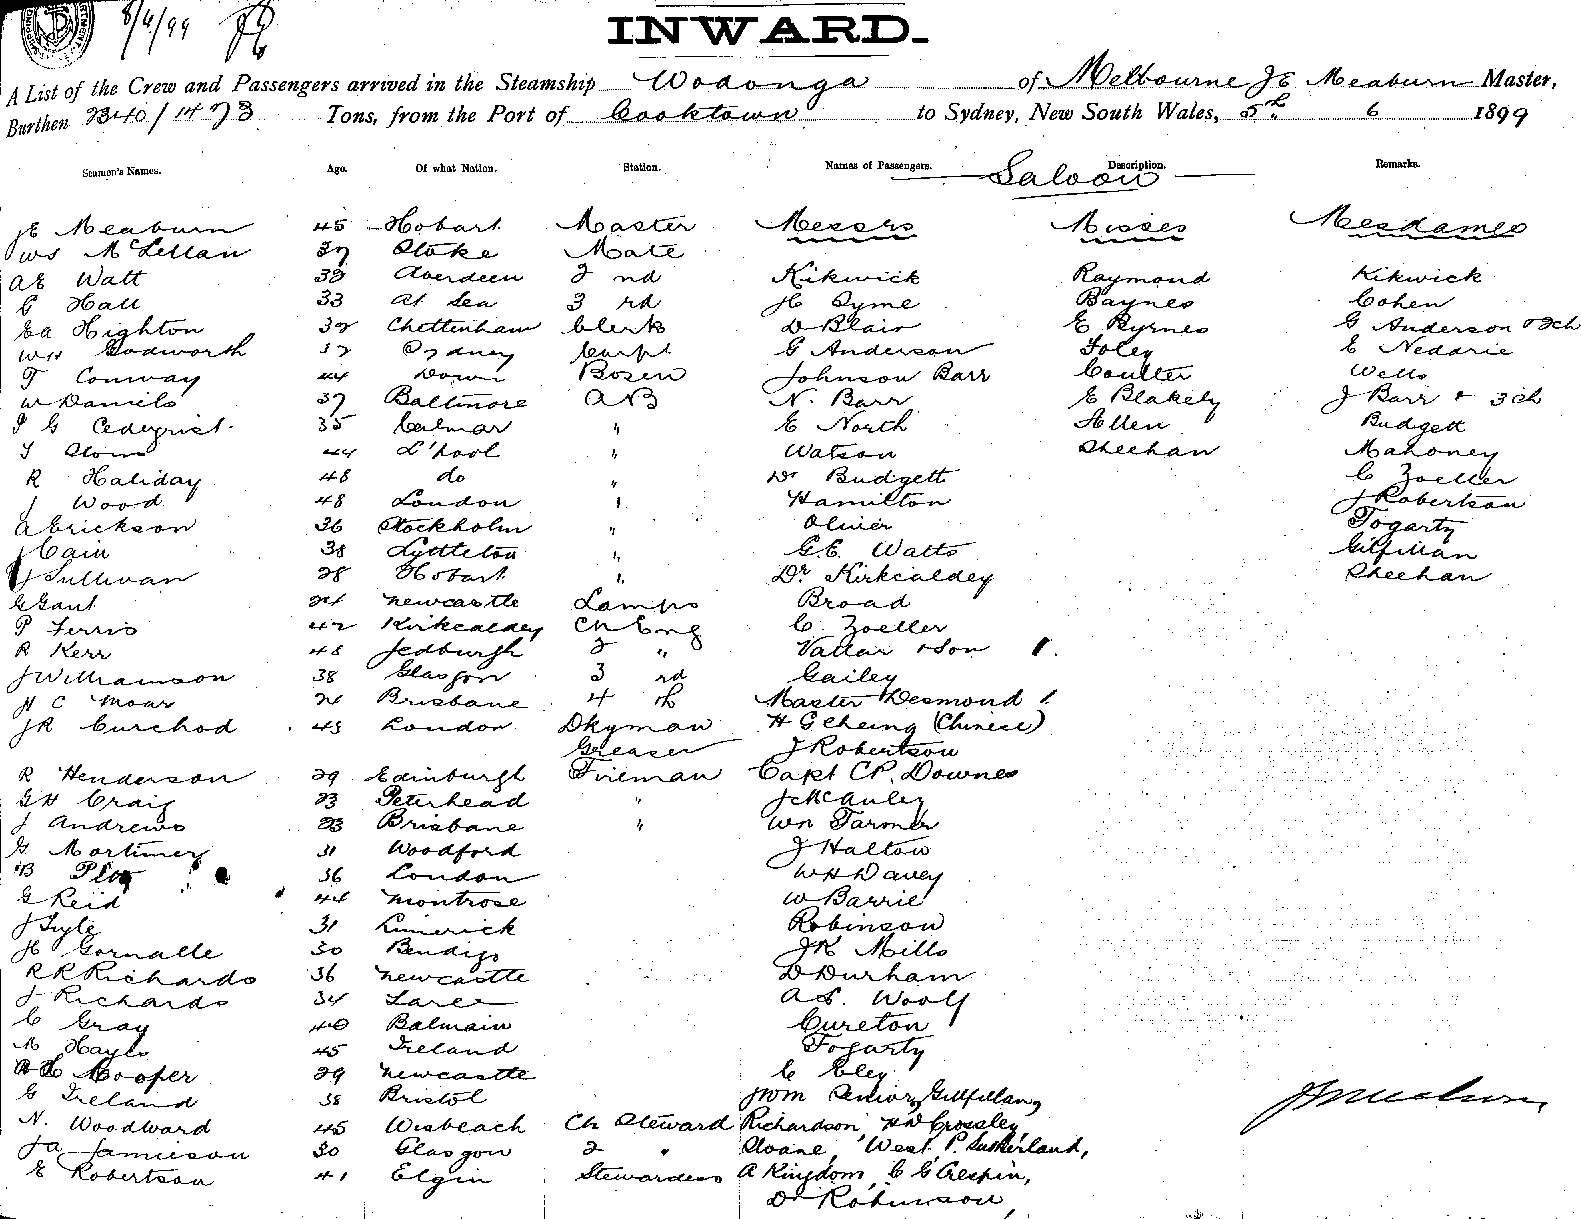 8/6/99
INWARD.
A List of the Crew and Passengers arrived in the Steamship Wodonga of Melbourne J E Meaburn Master,
Burthen 2340/1473 Tons, from the Port of Cooktown to Sydney, New South Wales, 5th 6 1899
Seamen's Names. Age. Of what Nation. Station. Names of Passengers. Saloon Description. Remarks.
JE Meaburn 45 Hobart Master Messrs Misses Mesdames
WS McLellan 37 Stoke Mate
AE Watt 38 Aberdeen 2 nd Kikwick Raymond Kikwick
G Hall 33 At Sea 3 rd H Syme Baynes Cohen
EA Highton 32 Cheltenham Clerk D Blair E Byrnes G Anderson & 2ch
WH Godworth 32 Sydney Carpt G Anderson Foley E Neddrie
T Conway 44 Down Bosen Johnson Barr Coulter Wells
W Daniels 37 Baltimore AB N. Barr E Blakely J Barr + 3 ch
P G Cedeqrist 35 Calmar " E North Allen Budgett
T 44 L'pool " Watson Sheehan Mahoney
R Haliday 48 do " Dr Budgett C Zoeller
J Wood 48 London " Hamilton J Robertson
A Erickson 36 Stockholm " Olivier Fogarty
J Cain 38 Lyttleton " G.E. Watts Gilfillan
J Sullivan 28 Hobart " Dr Kirkcaldey Sheehan
G Gant 24 Newcastle Lamps Broad
P Ferris 42 Kirkcaldey Ch Eng C. Zoeller
R Kerr 48 Jedburgh 2 " Vallar & Son 1.
J Williamson 38 Glasgow 3 rd Gailey
H C Moar 24 Brisbane 4 th Master Desmond 1
JR Curchod 43 London Dkyman H G Cheing (Chinese)
Greaser J Robertson
R Henderson 29 Edinburgh Fireman Capt CP. Downes
GH Craig 23 Peterhead " J McAuley
J Andrews 23 Brisbane " Wm Farmer
G Mortimer 31 Woodford J Halton
B 36 London WH Davey
G Reid 44 Montrose W Barrie
J Lyle 31 Limerick Robinson
H Gornalle 30 Bendigo JK Mills
RR Richards 36 Newcastle D Durham
J Richards 34 A S. Woolf
C Gray 40 Balmain Cureton
M Hayes 45 Ireland Fogarty
Hooper 29 Newcastle C Eley
G Ireland 38 Bristol Senior, Gillfillan,
N. Woodward 45 Wisbeach Ch Steward Richardson, HW Crossley,
JA Jamieson 30 Glasgow 2 " Sloane, West, P. Sutherland,
E Robertson 41 Elgin Stewardess A Kingdom, C G Crespin,
Dr Robinson,